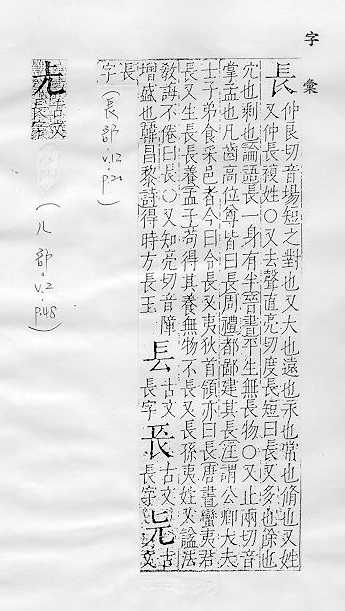 字彙
長
仲良切音場短之對也又大也遠也永也常也脩也又姓
又仲長複姓○又去聲直亮切度長短曰長又多也餘也
宂也剩也論語長一身有半晉書平生無長物○又止兩切音
掌孟也凡齒高位尊皆曰長周禮都鄙建其長注謂公卿大夫
士子弟食采邑者今曰令長又夷狄首領亦曰長唐書蠻夷君
長又生長長養孟子苟得其養無物不長又長孫夷姓又諡法
敎誨不倦曰長○又知亮切音障
增盛也韓昌黎詩得時方長王
古文
長字
古文
長字
古
文
長
字
(長部.v.12 p.20)
古文
長字
(儿部.v.2 p.48)